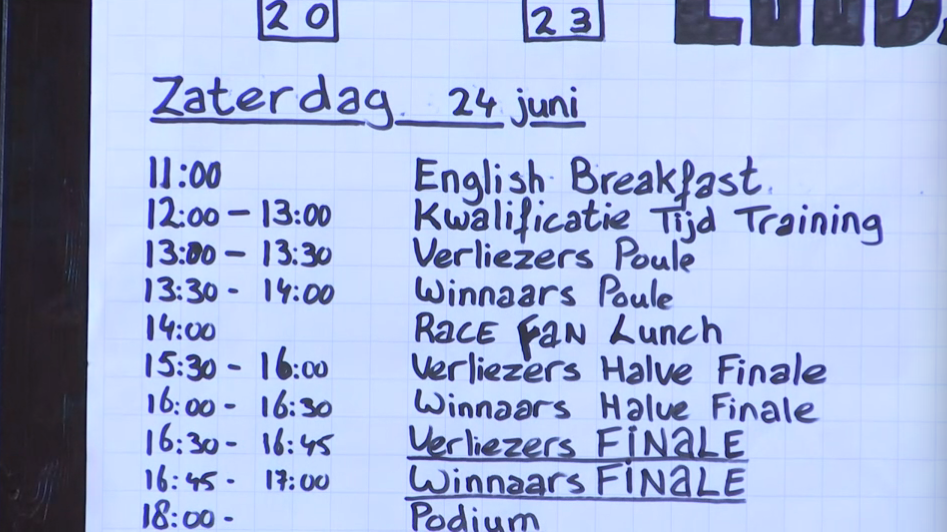 20 23
Zaterdag 24 juni
11:00 English Breakfast
12:00 - 13:00 Kwalificatie Tijd Training
13:00 - 13:30 Verliezers Poule
13:30 - 14:00 Winnaars Poule
14:00 RACE FAN Lunch
15:30 - 16:00 Verliezers Halve Finale
16:00 - 16:30 Winnaars Halve Finale
16:30 - 16:45 Verliezers FINALE
16:45 - 17:00 Winnaars FINALE
18:00 - Podium